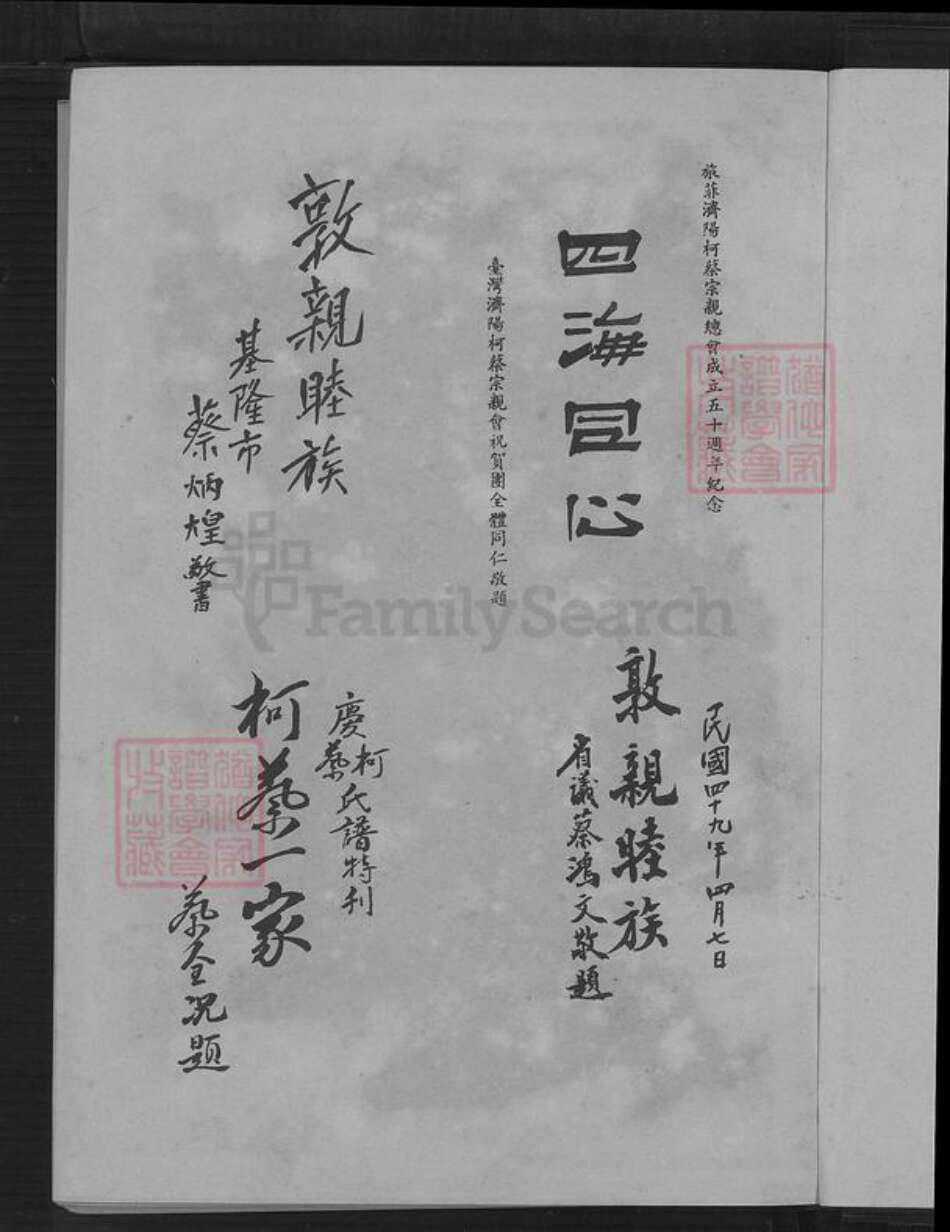 旅菲濟陽柯蔡宗親總會成立五十週年紀念
四海同心
臺灣濟陽柯蔡宗親會祝賀團全體同仁敬題
敦親睦族
基隆市
蔡炳煌敬書
民國四十九年四月七日
敦親睦族
省議蔡鴻文敬題
慶柯蔡氏譜特利
柯蔡一家
蔡全況題
FamilySearch